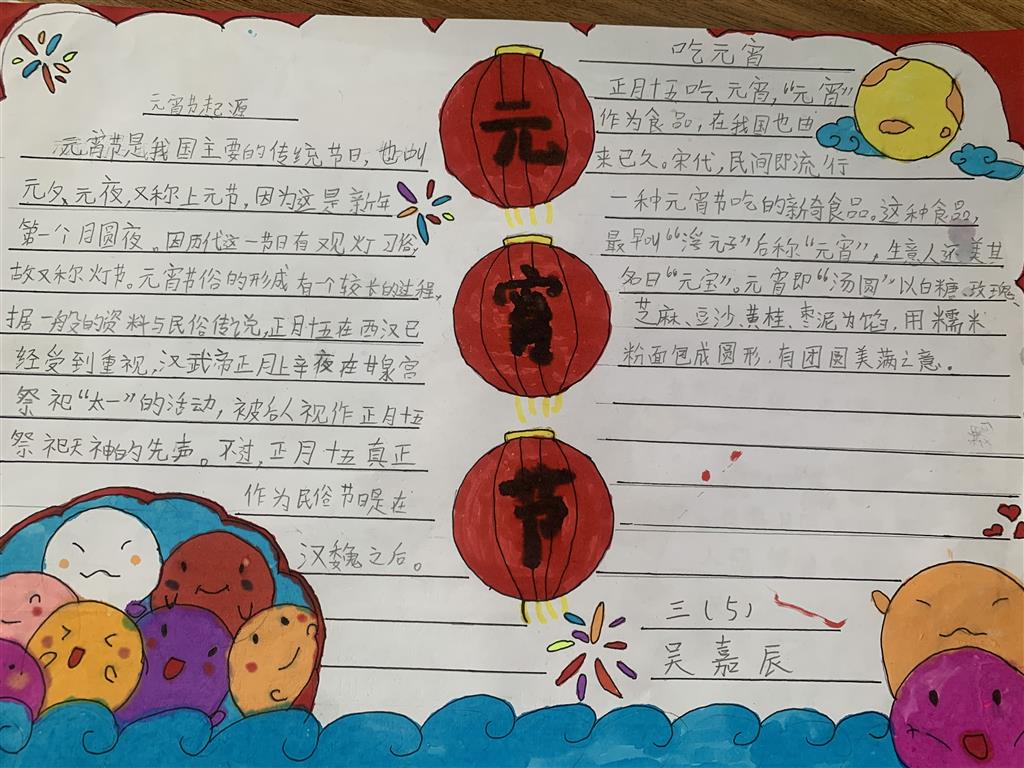 元宵节起源
元宵节是我国主要的传统节日，也叫
元夕、元夜，又称上元节，因为这是新年
第一个月圆夜。因历代这一节日有观灯习俗，
故又称灯节。元宵节俗的形成有个较长的过程，
据一般的资料与民俗传说，正月十五在西汉已
经受到重视，汉武帝正月上辛夜在甘泉宫
祭祀“太一”的活动，被后人视作正月十五
祭祀天神的先声。不过，正月十五真正
作为民俗节日是在
汉魏之后。
元
宵
节
吃元宵
正月十五吃、元宵，“元宵”
作为食品，在我国也由
来已久。宋代，民间即流行
一种元宵节吃的新奇食品。这种食品，
最早叫“浮元子”后称“元宵”，生意人还美其
名曰“元宝”。元宵即“汤圆”以白糖、玫瑰、
芝麻、豆沙、黄桂、枣泥为馅，用糯米
粉面包成圆形.有团圆美满之意.
三（5）
吴嘉辰